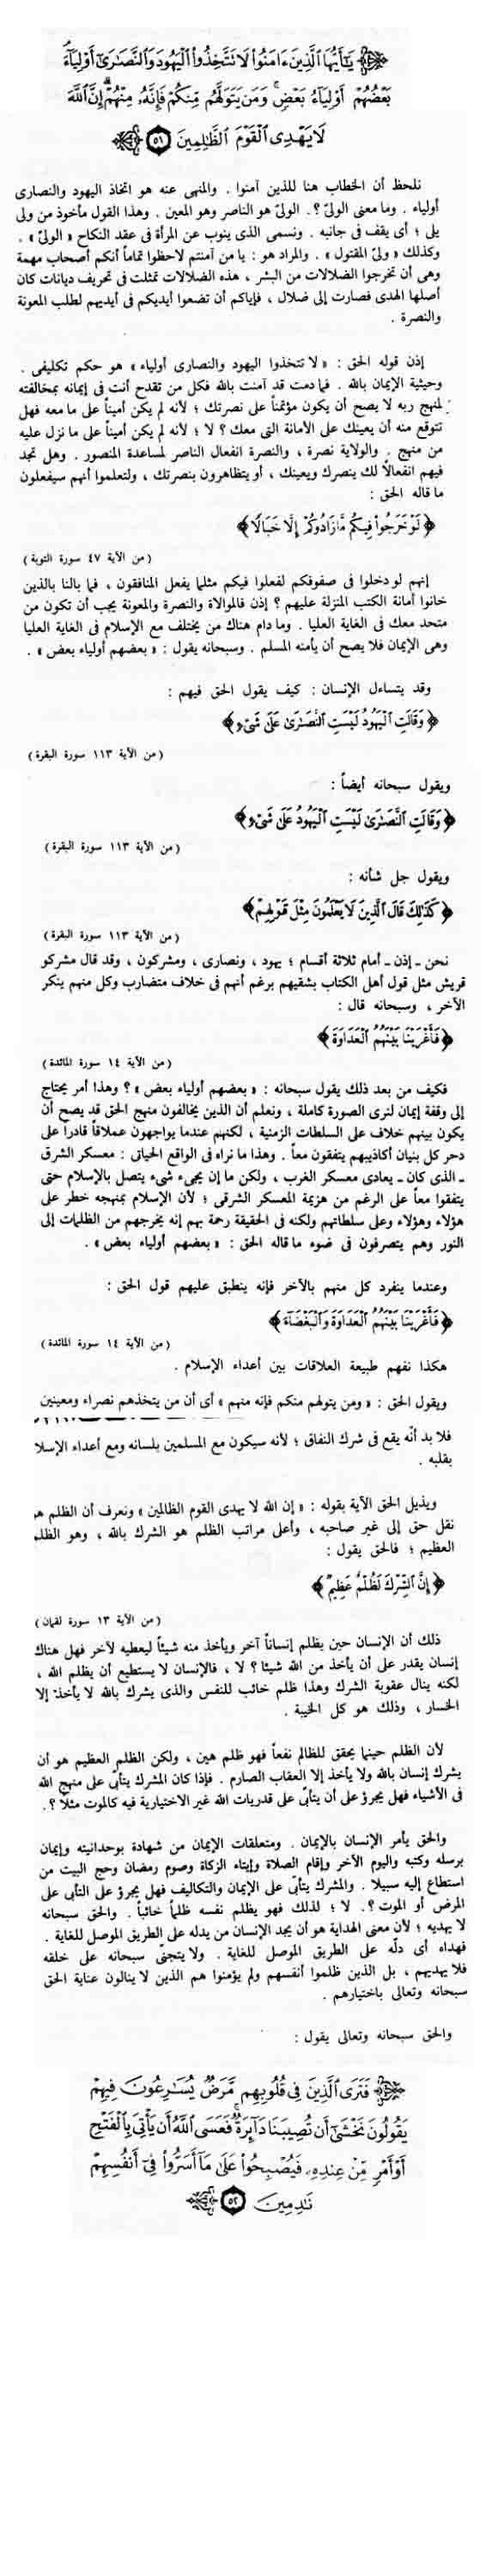 يَٰٓأَيُّهَا ٱلَّذِينَ ءَامَنُوا۟ لَا تَتَّخِذُوا۟ ٱلْيَهُودَ وَٱلنَّصَٰرَىٰٓ أَوْلِيَآءَ ۘ
بَعْضُهُمْ أَوْلِيَآءُ بَعْضٍ ۚ وَمَن يَتَوَلَّهُم مِّنكُمْ فَإِنَّهُۥ مِنْهُمْ ۗ إِنَّ ٱللَّهَ
لَا يَهْدِى ٱلْقَوْمَ ٱلظَّٰلِمِينَ ٥١
نلحظ أن الخطاب هنا للذين آمنوا . والمنهى عنه هو اتخاذ اليهود والنصارى
أولياء . وما معنى الولىّ ؟. الولىّ هو الناصر وهو المعين . وهذا القول مأخوذ من ولى
يلى ؛ أى يقف فى جانبه . ونسمى الذى ينوب عن المرأة فى عقد النكاح « الولىّ » .
وكذلك « ولىّ المقتول » . والمراد هو : يا من آمنتم لاحظوا تماماً أنكم أصحاب مهمة
وهى أن تخرجوا الضلالات من البشر ، هذه الضلالات تمثلت فى تحريف ديانات كان
أصلها الهدى فصارت إلى ضلال ، فإياكم أن تضعوا أيديكم فى أيديهم لطلب المعونة
والنصرة .
إذن قوله الحق : « لا تتخذوا اليهود والنصارى أولياء » هو حكم تكليفى .
وحيثية الإيمان بالله . فما دمت قد آمنت بالله فكل من تقدح أنت فى إيمانه بمخالفته
لمنهج ربه لا يصح أن يكون مؤتمناً على نصرتك ؛ لأنه لم يكن أميناً على ما معه فهل
تتوقع منه أن يعينك على الأمانة التى معك ؟ لا ؛ لأنه لم يكن أميناً على ما نزل عليه
من منهج . والولاية نصرة ، والنصرة انفعال الناصر لمساعدة المنصور . وهل تجد
فيهم انفعالاً لك ينصرك ويعينك ، أو يتظاهرون بنصرتك ، ولتعلموا أنهم سيفعلون
ما قاله الحق :
﴿ لَوْ خَرَجُوا۟ فِيكُم مَّا زَادُوكُمْ إِلَّا خَبَالًا ﴾
( من الآية ٤٧ سورة التوبة )
إنهم لو دخلوا فى صفوفكم لفعلوا فيكم مثلما يفعل المنافقون ، فما بالنا بالذين
خانوا أمانة الكتب المنزلة عليهم ؟ إذن فالموالاة والنصرة والمعونة يجب أن تكون من
متحد معك فى الغاية العليا . وما دام هناك من يختلف مع الإسلام فى الغاية العليا
وهى الإيمان فلا يصح أن يأمنه المسلم . وسبحانه يقول : « بعضهم أولياء بعض » .
وقد يتساءل الإنسان : كيف يقول الحق فيهم :
﴿ وَقَالَتِ ٱلْيَهُودُ لَيْسَتِ ٱلنَّصَٰرَىٰ عَلَىٰ شَىْءٍ ﴾
( من الآية ١١٣ سورة البقرة )
ويقول سبحانه أيضاً :
﴿ وَقَالَتِ ٱلنَّصَٰرَىٰ لَيْسَتِ ٱلْيَهُودُ عَلَىٰ شَىْءٍ ﴾
( من الآية ١١٣ سورة البقرة )
ويقول جل شأنه :
﴿ كَذَٰلِكَ قَالَ ٱلَّذِينَ لَا يَعْلَمُونَ مِثْلَ قَوْلِهِمْ ﴾
( من الآية ١١٣ سورة البقرة )
نحن ـ إذن ـ أمام ثلاثة أقسام ؛ يهود ، ونصارى ، ومشركون ، وقد قال مشركو
قريش مثل قول أهل الكتاب بشقيهم برغم أنهم فى خلاف متضارب وكل منهم ينكر
الآخر ، وسبحانه قال :
﴿ فَأَغْرَيْنَا بَيْنَهُمُ ٱلْعَدَاوَةَ ﴾
( من الآية ١٤ سورة المائدة )
فكيف من بعد ذلك يقول سبحانه : « بعضهم أولياء بعض » ؟ وهذا أمر يحتاج
إلى وقفة إيمان لنرى الصورة كاملة ، ونعلم أن الذين يخالفون منهج الحق قد يصح أن
يكون بينهم خلاف على السلطات الزمنية ، لكنهم عندما يواجهون عملاقاً قادراً على
دحر كل بنيان أكاذيبهم يتفقون معاً . وهذا ما نراه فى الواقع الحياتى : معسكر الشرق
ـ الذى كان ـ يعادى معسكر الغرب ، ولكن ما إن يجىء شىء يتصل بالإسلام حتى
يتفقوا معاً على الرغم من هزيمة المعسكر الشرقى ؛ لأن الإسلام بمنهجه خطر على
هؤلاء وهؤلاء وعلى سلطاتهم ولكنه فى الحقيقة رحمة بهم إنه يخرجهم من الظلمات إلى
النور وهم يتصرفون فى ضوء ما قاله الحق : « بعضهم أولياء بعض » .
وعندما ينفرد كل منهم بالآخر فإنه ينطبق عليهم قول الحق :
﴿ فَأَغْرَيْنَا بَيْنَهُمُ ٱلْعَدَاوَةَ وَٱلْبَغْضَآءَ ﴾
( من الآية ١٤ سورة المائدة )
هكذا نفهم طبيعة العلاقات بين أعداء الإسلام .
ويقول الحق : « ومن يتولهم منكم فإنه منهم » أى أن من يتخذهم نصراء ومعينين
فلا بد أنّه يقع فى شرك النفاق ؛ لأنه سيكون مع المسلمين بلسانه ومع أعداء الإسلا
بقلبه .
ويذيل الحق الآية بقوله : « إن الله لا يهدى القوم الظالمين » ونعرف أن الظلم هو
نقل حق إلى غير صاحبه ، وأعلى مراتب الظلم هو الشرك بالله ، وهو الظلم
العظيم ؛ فالحق يقول :
﴿ إِنَّ ٱلشِّرْكَ لَظُلْمٌ عَظِيمٌ ﴾
( من الآية ١٣ سورة لقمان )
ذلك أن الإنسان حين يظلم إنساناً آخر ويأخذ منه شيئاً ليعطيه لآخر فهل هناك
إنسان يقدر على أن يأخذ من الله شيئا ؟ لا ، فالإنسان لا يستطيع أن يظلم الله ،
لكنه ينال عقوبة الشرك وهذا ظلم خائب للنفس والذى يشرك بالله لا يأخذ إلا
الخسار ، وذلك هو كل الخيبة .
لأن الظلم حينما يحقق للظالم نفعاً فهو ظلم هين ، ولكن الظلم العظيم هو أن
يشرك إنسان بالله ولا يأخذ إلا العقاب الصارم . فإذا كان المشرك يتأبّى على منهج الله
فى الأشياء فهل يجرؤ على أن يتأبّى على قدريات الله غير الاختيارية فيه كالموت مثلاً ؟.
والحق يأمر الإنسان بالإيمان . ومتعلقات الإيمان من شهادة بوحدانيته وإيمان
برسله وكتبه واليوم الآخر وإقام الصلاة وإيتاء الزكاة وصوم رمضان وحج البيت من
استطاع إليه سبيلا . والمشرك يتأبّى على الإيمان والتكاليف فهل يجرؤ على التأبى على
المرض أو الموت ؟. لا ؛ لذلك فهو يظلم نفسه ظلماً خائباً . والحق سبحانه
لا يهديه ؛ لأن معنى الهداية هو أن يجد الإنسان من يدله على الطريق الموصل للغاية .
فهداه أى دلّه على الطريق الموصل للغاية . ولا يتجنّى سبحانه على خلقه
فلا يهديهم ، بل الذين ظلموا أنفسهم ولم يؤمنوا هم الذين لا ينالون عناية الحق
سبحانه وتعالى باختيارهم .
والحق سبحانه وتعالى يقول :
فَتَرَى ٱلَّذِينَ فِى قُلُوبِهِم مَّرَضٌ يُسَٰرِعُونَ فِيهِمْ
يَقُولُونَ نَخْشَىٰٓ أَن تُصِيبَنَا دَآئِرَةٌ ۚ فَعَسَى ٱللَّهُ أَن يَأْتِىَ بِٱلْفَتْحِ
أَوْ أَمْرٍ مِّنْ عِندِهِۦ فَيُصْبِحُوا۟ عَلَىٰ مَآ أَسَرُّوا۟ فِىٓ أَنفُسِهِمْ
نَٰدِمِينَ ٥٢